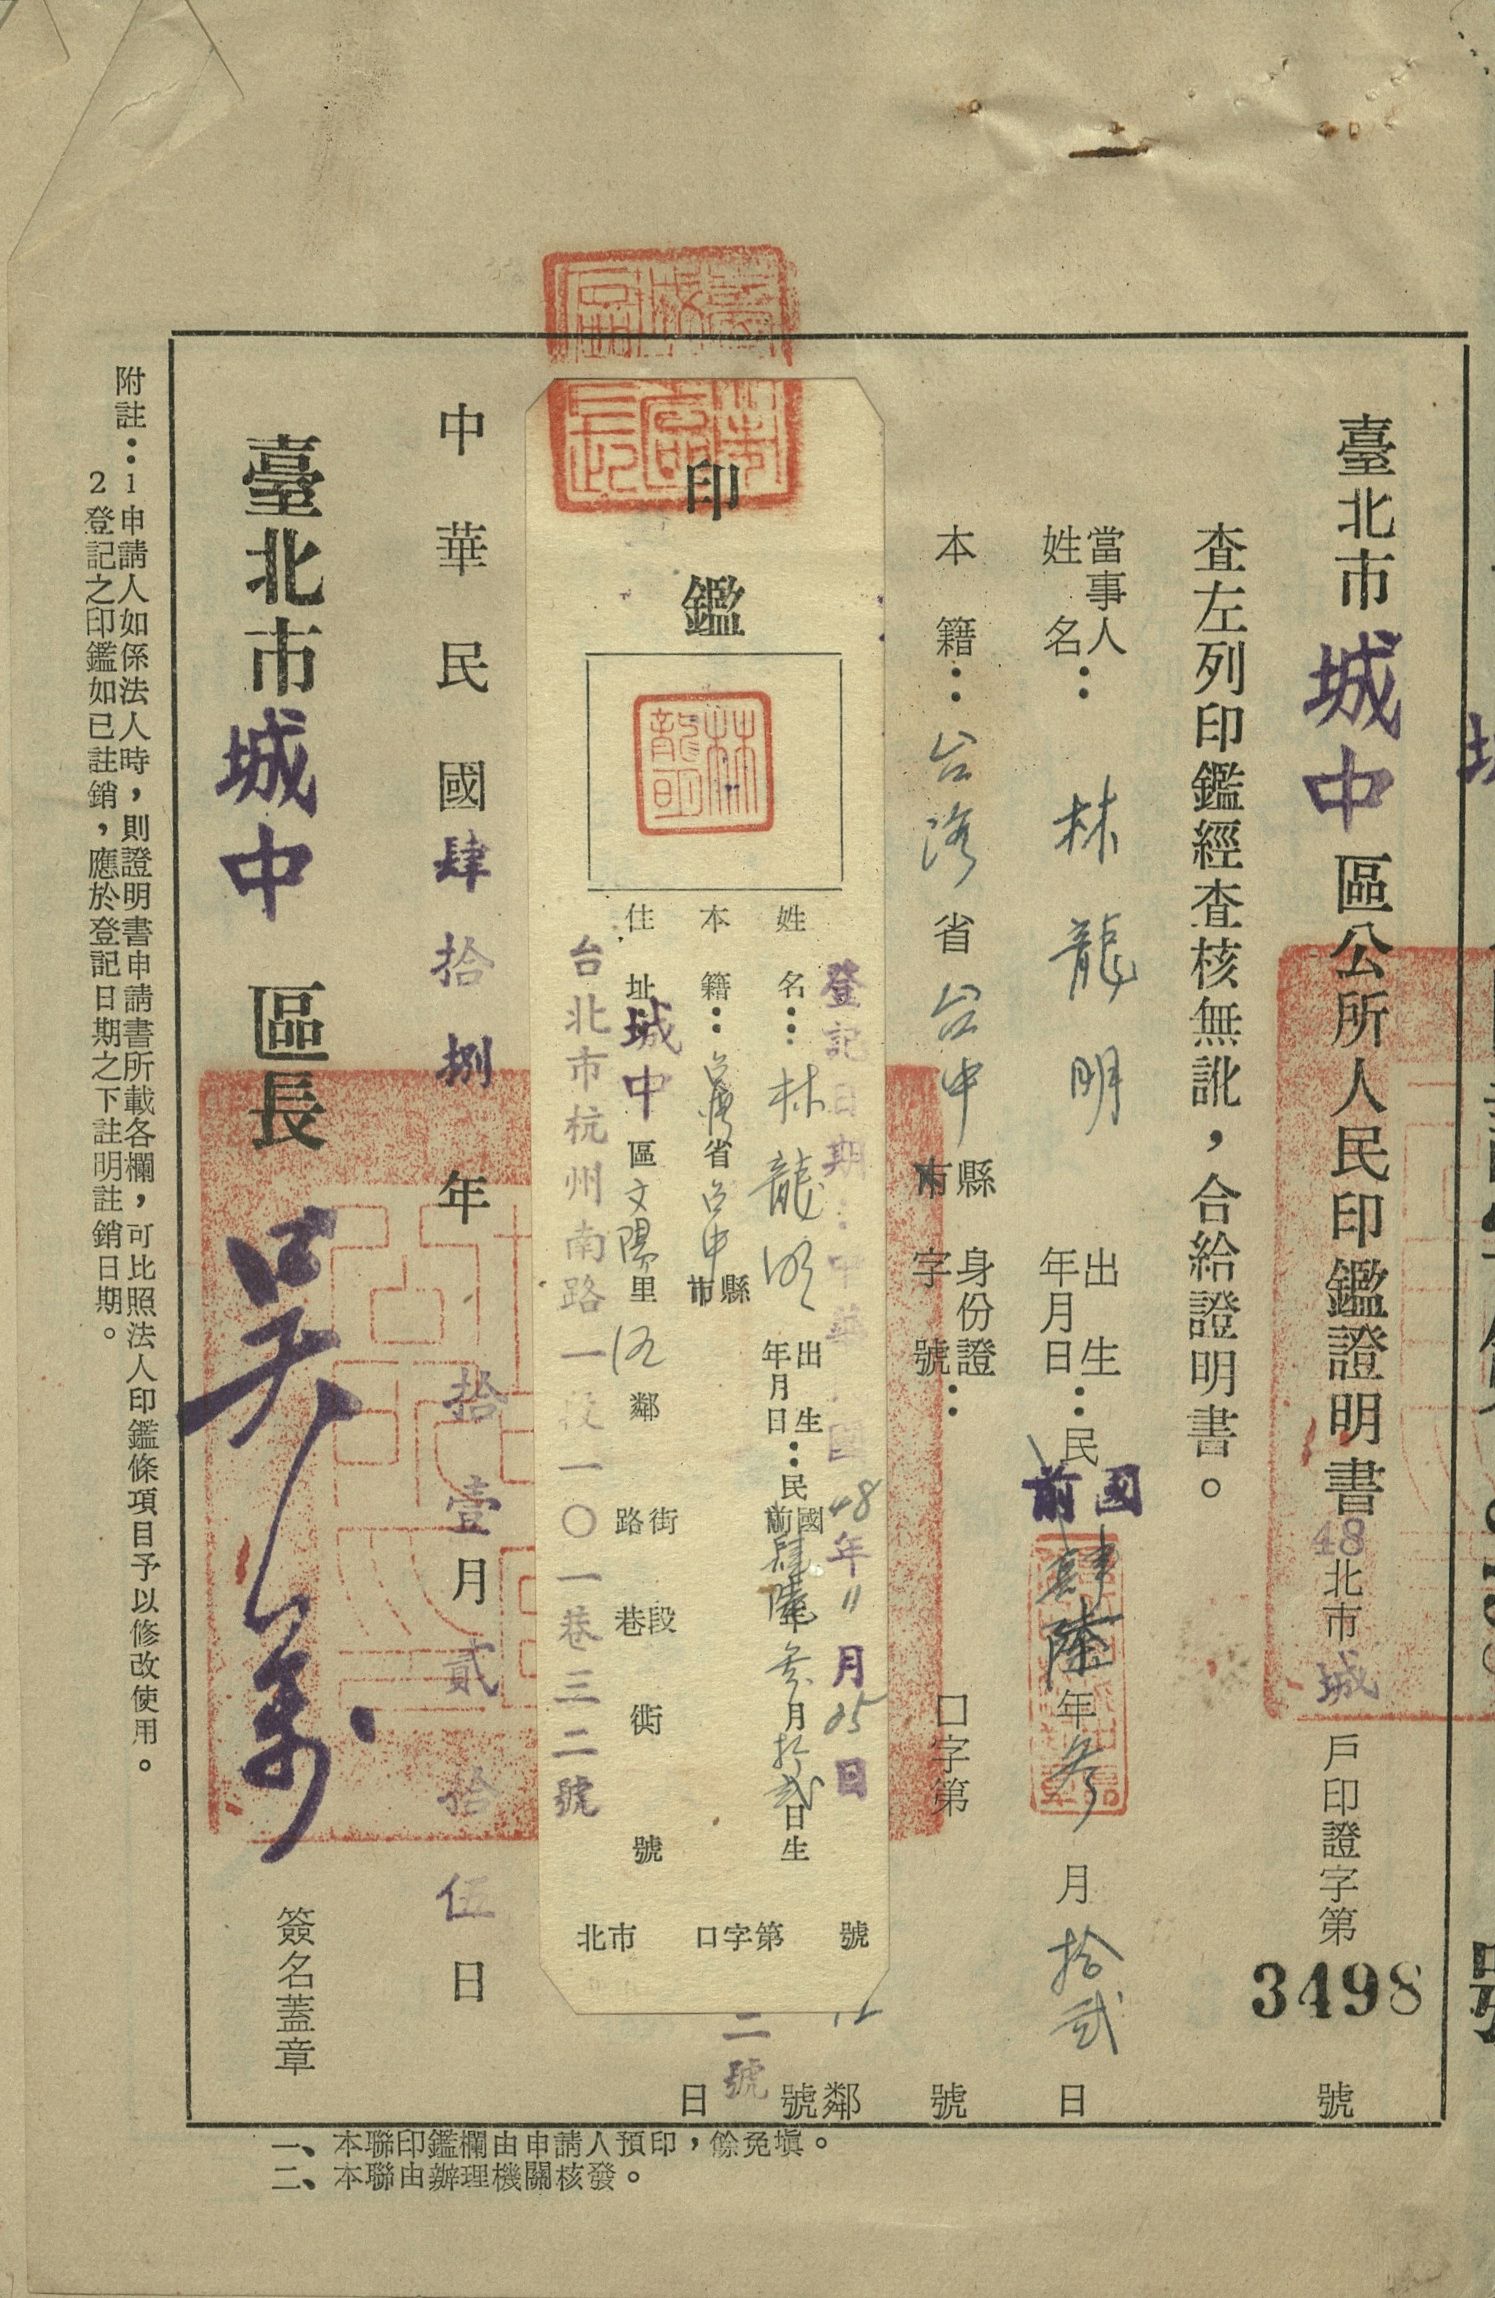 臺北市城中區公所人民印鑑證明書
48北市城戶印證字第3498號
查左列印鑑經查核無訛，合給證明書。
當事人姓名：林龍明
出生年月日：民國前肆陸年參月拾貳日
本籍：台灣省台中縣市
身份證字號：口字第號
鄰號
二號
日
印鑑
林龍明
登記日期：中華民國48年11月05日
姓名：林龍明
出生年月日：民國前肆陸年叁月拾貳日生
本籍：台灣省台中縣市
住址城中區文陽里伍鄰街路段巷衖號
台北市杭州南路一段一〇一巷三二號
北市口字第號
中華民國肆拾捌年拾壹月貳拾伍日
臺北市城中區長吳萬
簽名蓋章
附註：1申請人如係法人時，則證明書申請書所載各欄，可比照法人印鑑條項目予以修改使用。
2登記之印鑑如已註銷，應於登記日期之下註明註銷日期。
一、本聯印鑑欄由申請人預印，餘免塡。
二、本聯由辦理機關核發。